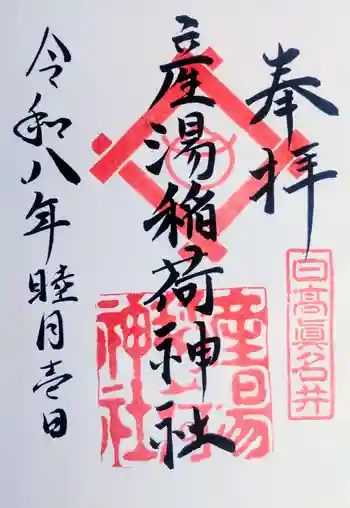 奉拝
日高眞名井
産湯稲荷神社
産湯稲荷神社
令和八年睦月壱日